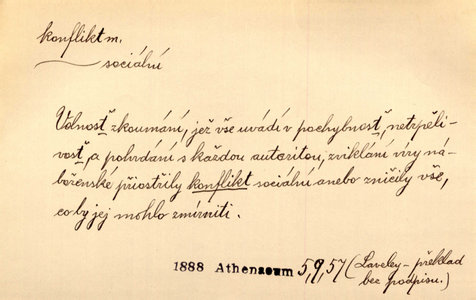 konflikt m.
sociální
Volnosť zkoumání, jež vše uvádí v pochybnosť, netrpěli-
vosť, a pohrdání s každou autoritou, zviklání víry ná-
boženské přiostřily konflikt sociální anebo zničily vše,
co by jej mohlo zmírniti.
1888 Athenaeum 5,9,57 (Laveley - překlad
bez podpisu.)